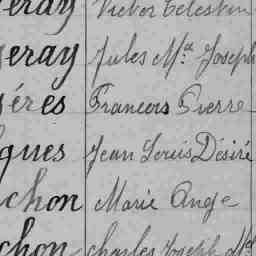 eray Victor Célestin
eray Jules Mie Joseph
ères Francois Pierre
ques Jean Louis Désiré
chon Marie Ange
chon Charles Joseph Mel